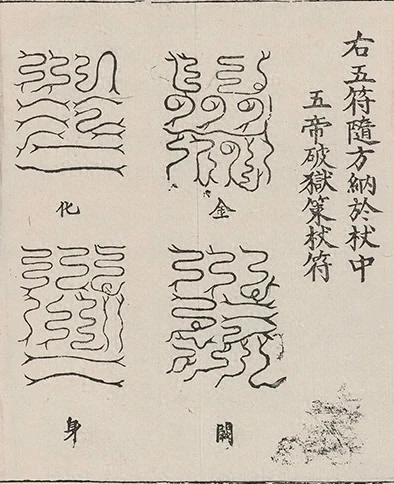 右五符隨方納於杖中
五帝破獄策杖符
金
闕
化
身